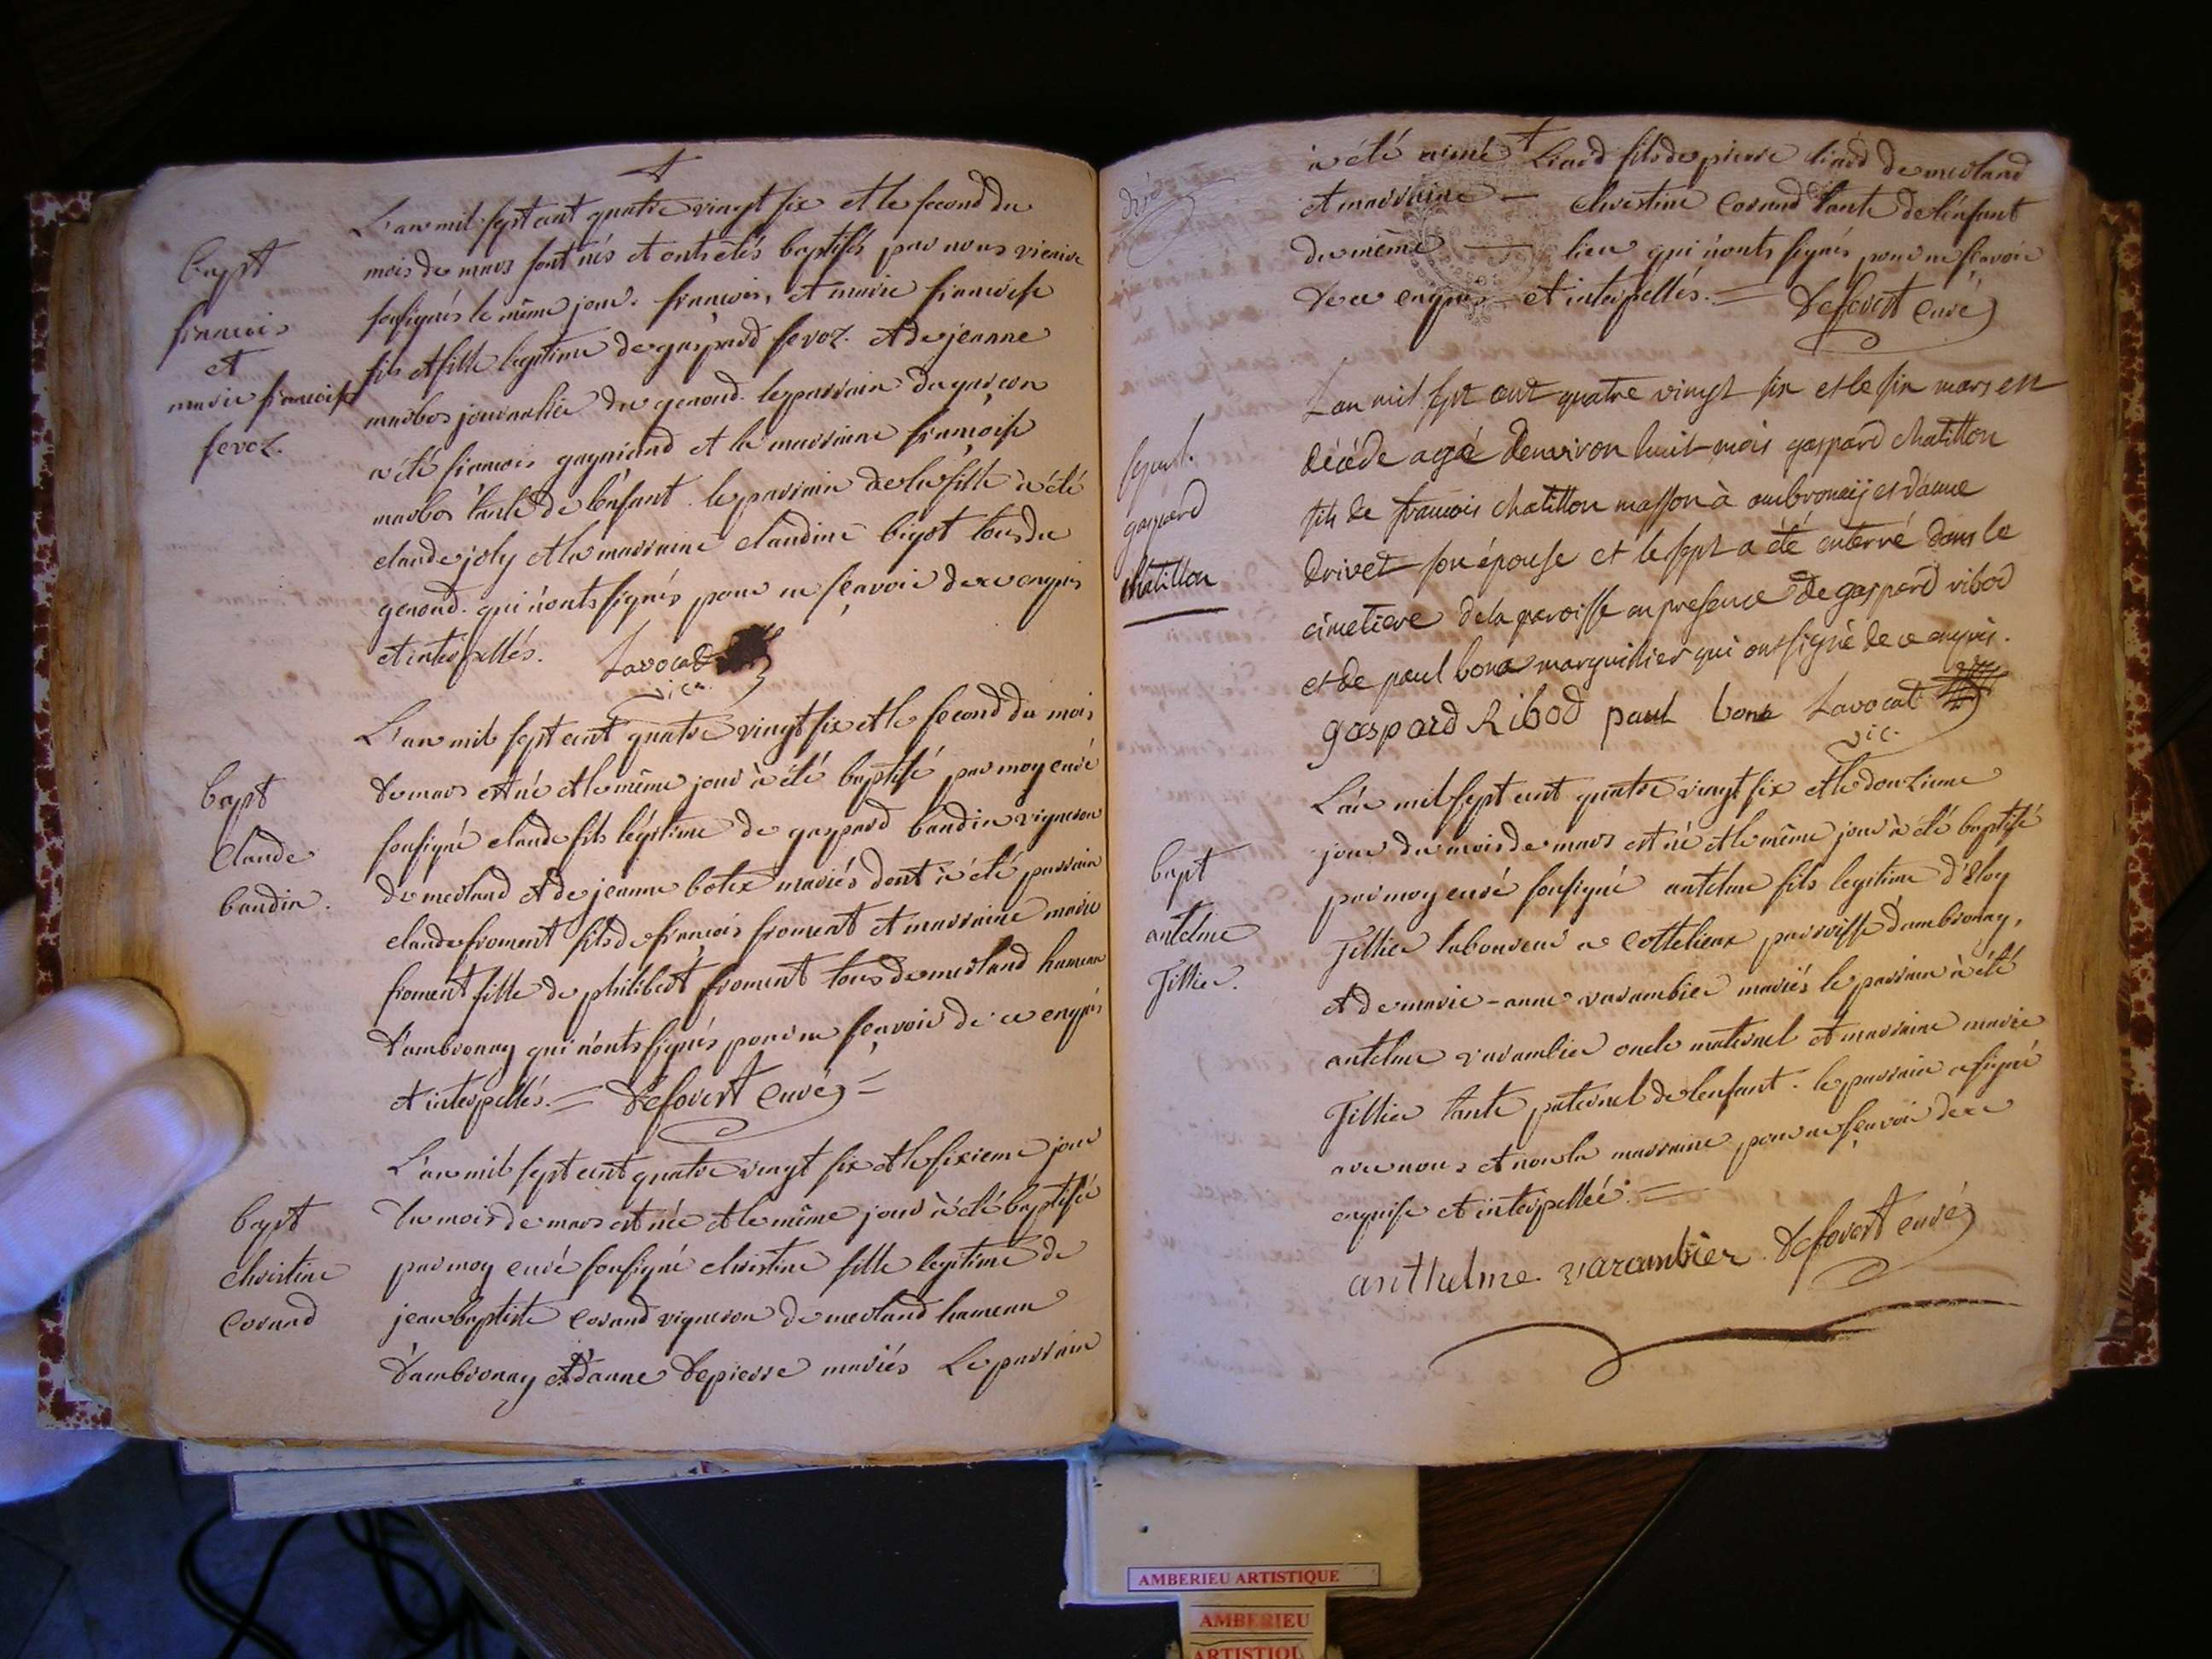 L'an mil sept cent quatre vingt six et le second du
mois de mars sont nés et onts étés baptisés par nous vicaire
sousignés le même jour. françois, et marie françoise
fils et fille legitime de gaspard fevoz. et de jeanne
marbos journalier du genoud. le parrain du garçon
a été françois gagniand et la marraine françoise
marbos tante de l'enfant. le parrain de la fille a été
claude joly et la marraine claudine bigot tous du
genoud. qui n'onts signés pour ne sçavoir de ce enquis
et interpellés.
Lavocat
vic.
bapt
françois
et
marie françoise
fevoz.
L'an mil sept cent quatre vingt six et le second du mois
de mars est né et le même jour à été baptisé par moy curé
sousigné claude fils légitime de gaspard baudin vigneron
de merland et de jeanne botex mariés dont à été parrain
claude froment fils de françois froment et marraine marie
froment fille de philibert froment tous de merland hameau
d'ambronay qui n'onts signés pour ne sçavoir de ce enquis
et interpellés. = Defovert curé =
bapt
Claude
baudin.
L'an mil sept cent quatre vingt six et le sixieme jour
du mois de mars est née et le même jour à été baptisée
par moy curé sousigné christine fille legitime de
jean baptiste Corand vigneron de merland hameau
d'ambronay et d'anne depierre mariés Le parrain
bapt
christine
Corand
à été aimé Liard fils de pierre liard de merland
et marraine — christine Corand tante de l'enfant
du même — lieu qui n'onts signés pour ne sçavoir
de ce enquis et interpellés. = Defovert curé
L'an mil sept cent quatre vingt six et le six mars est
décédé agé d'environ huit mois gaspard chatillon
fils de francois chatillon masson à ambronaÿ et d'anne
drivet son épouse et le sept a été enterré dans le
cimetiere de la paroisse en presence de gaspard ribod
et de paul bona marguillier qui ont signé de ce enquis.
gaspard Ribod paul bona Lavocat
vic.
sepult.
gaspard
chatillon
L'an mil sept cent quatre vingt six et le douzieme
jour du mois de mars est né et le même jour à été baptisé
par moy curé sousigné antelme fils legitime d'Eloy
Tillier laboureur a Cottelieux parroisse d'ambronay,
et de marie-anne varambier mariés le parrain à été
antelme varambier oncle maternel et marraine marie
Tillier tante paternel de l'enfant. le parrain a signé
avec nous et non la marraine pour ne sçavoir de ce
enquise et interpellée. =
anthelme varambier Defovert curé
bapt
antelme
Tillier.
AMBERIEU ARTISTIQUE
AMBERIEU